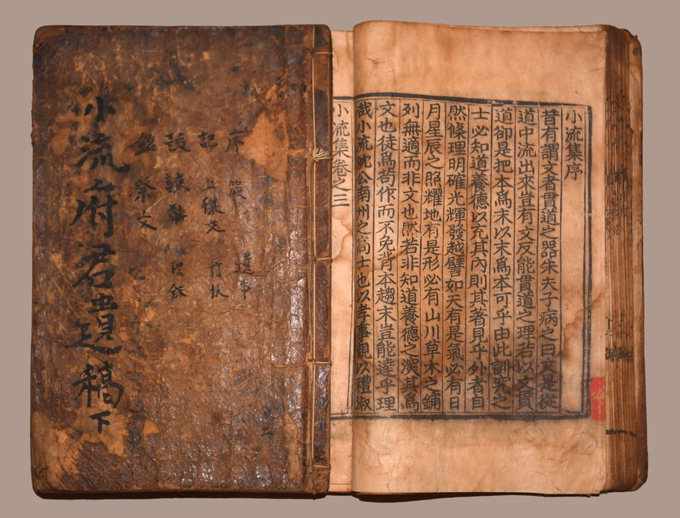 小流集序
昔有謂文者貫道之器朱夫子病之曰文是從
道中流出來豈有文反能貫道之理若以文貫
道卻是把本爲末以末爲本可乎由此訓求之
士必知道養德以充其內則其著見乎外者自
然條理明確光輝發越譬如天有是氣必有日
月星辰之照耀地有是形必有山川草木之鋪
列無適而非文也然若非知道養德之演其爲
文也徒爲苟作而不免背本趨末豈能達乎理
哉小流沈公南州之高士也以孝事親以禮淑
小流集卷之三
序 箴
記 上樑文 行狀
跋 附錄
銘 祭文
小流府君遺稿 下